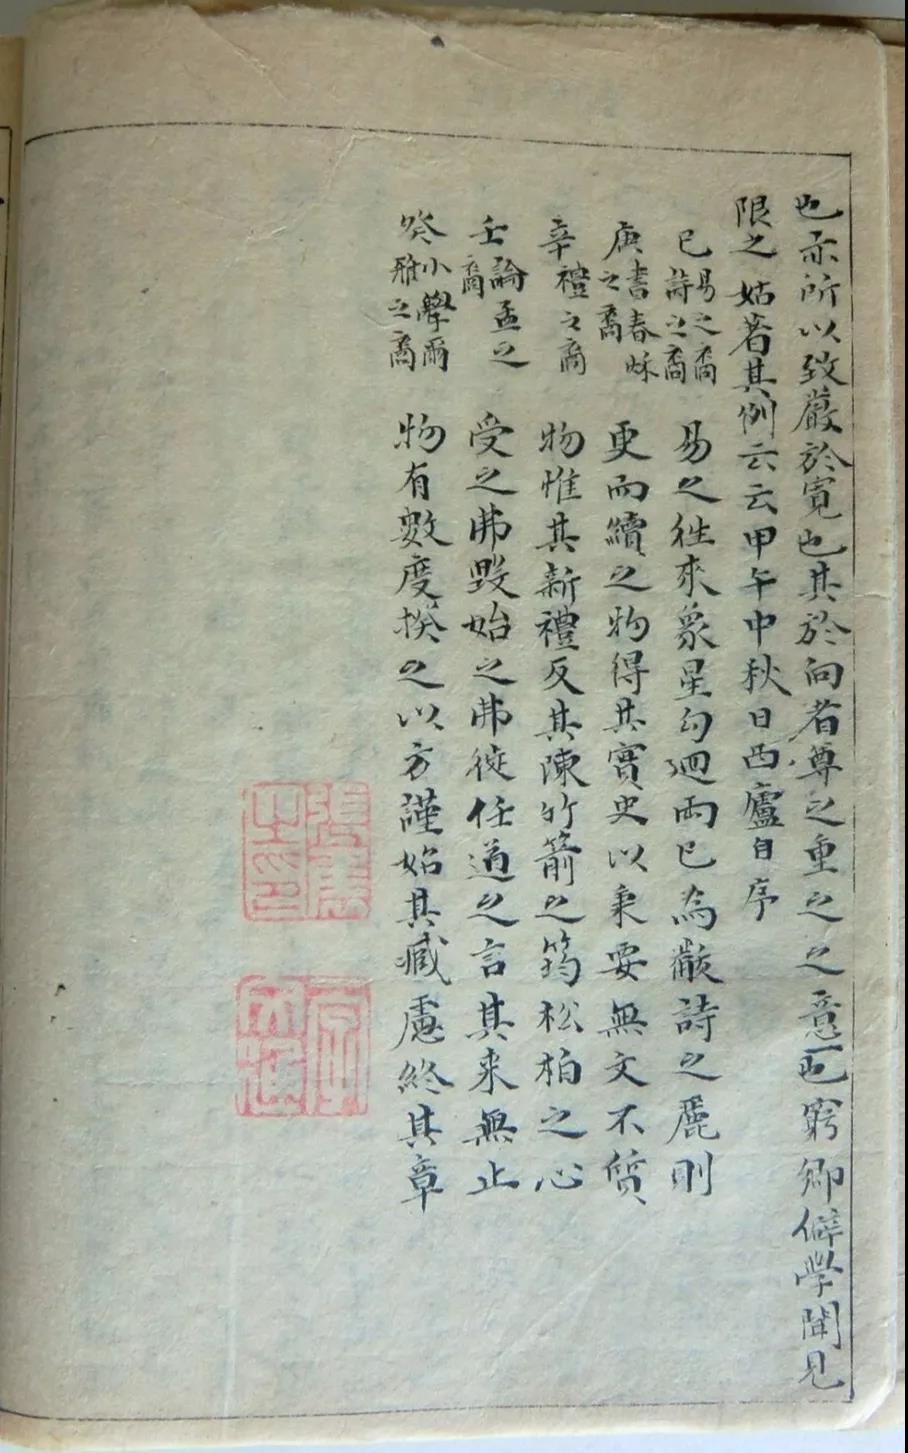 也亦所以致嚴於寬也其於向者尊之重之之意也窮鄉僻學聞見
限之姑著其例云云甲午中秋日西廬自序
已易之裔詩之裔 易之往來象星勾廻兩已為黻詩之麗則
庚書春秌之裔 更而續之物得其實史以秉要無文不質
辛禮之裔 物惟其新禮反其陳竹箭之筠松柏之心
壬論孟之裔 受之弗毀始之弗從任道之言其来無止
癸小學爾雅之裔 物有數度揆之以方謹始其臧慮終其章
之印